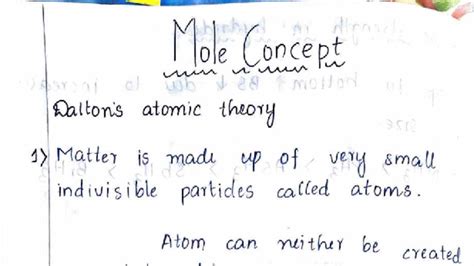 Mole Concept
Dalton's atomic theory
1) Matter is made up of very small
indivisible particles called atoms.
Atom can neither be created